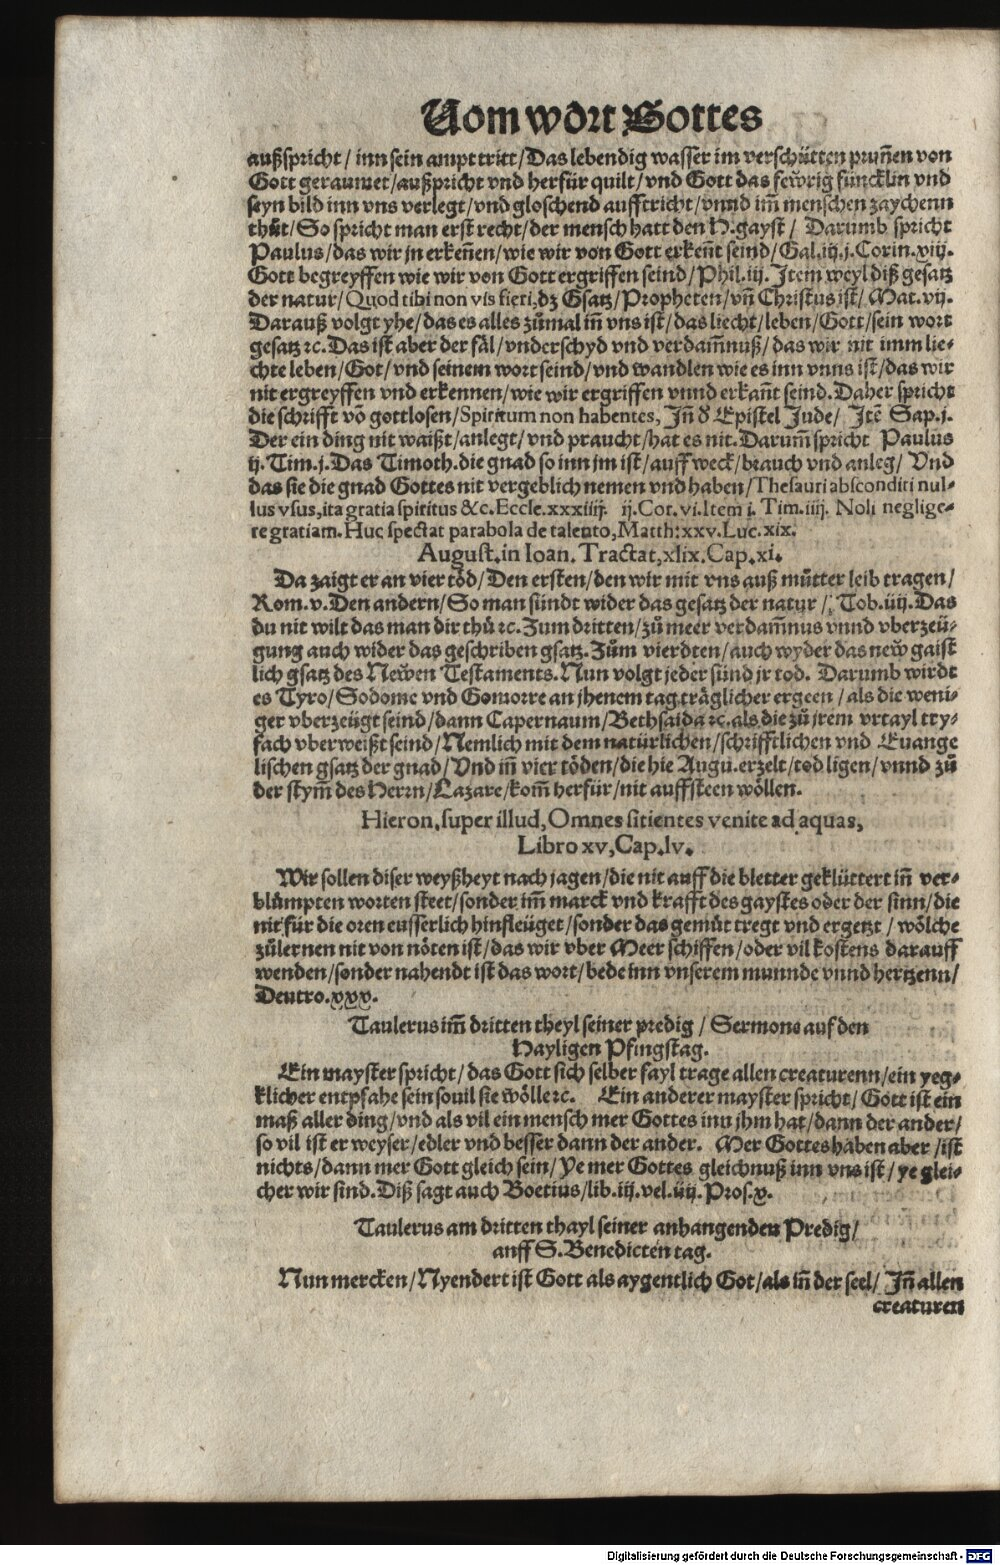 Vom wort Gottes
außspricht / inn sein ampt tritt / Das lebendig wasser im verschütten prunnen von
Gott geraumet / außpricht vnd herfür quilt / vnd Gott das fewrig füncklin vnd
seyn bild inn vns verlegt / vnd gloschend aufftricht / vnnd im̄ menschen zaychenn
thůt / So spricht man erst recht / der mensch hatt den H. gayst / Darumb spricht
Paulus / das wir jn erkeñen / wie wir von Gott erkeñt seind / Gal. iij. j. Corin. xiij.
Gott begreyffen wie wir von Gott ergriffen seind / Phil. iij. Item weyl diß gesatz
der natur / Quod tibi non vis fieri, dz Gsatz / Propheten / vñ Christus ist / Mat. vij.
Darauß volgt yhe / das es alles zůmal iñ vns ist / das liecht / leben / Gott / sein wort
gesatz ꝛc. Das ist aber der fäl / vnderschyd vnd verdam̄nuß / das wir nit imm lie-
chte leben / Got / vnd seinem wort seind / vnd wandlen wie es inn vnns ist / das wir
nit ergreyffen vnd erkennen / wie wir ergriffen vnnd erkañt seind. Daher spricht
die schrifft võ gottlosen / Spiritum non habentes, Iñ ď Epistel Jude / Itē Sap. j.
Der ein ding nit waißt / anlegt / vnd praucht / hat es nit. Darum̄ spricht Paulus
ij. Tim. j. Das Timoth. die gnad so inn jm ist / auff weck / brauch vnd anleg / Vnd
das sie die gnad Gottes nit vergeblich nemen vnd haben / Thesauri absconditi nul-
lus vsus, ita gratia spiritus &c. Eccle. xxxiiij. ij. Cor. vi. Item i. Tim. iiij. Noli neglige-
re gratiam. Huc spectat parabola de talento, Matth: xxv. Luc. xix.
August. in Ioan. Tractat. xlix. Cap. xi.
Da zaigt er an vier töd / Den ersten / den wir mit vns auß můtter leib tragen /
Rom. v. Den andern / So man sündt wider das gesatz der natur / Tob. iiij. Das
du nit wilt das man dir thů ꝛc. Zum dritten / zů meer verdam̄nus vnnd vberzeü-
gung auch wider das geschriben gsatz. Zům vierdten / auch wyder das new gaist
lich gsatz des Newen Testaments. Nun volgt jeder sünd jr tod. Darumb wirdt
es Tyro / Sodome vnd Gomorre an jhenem tag träglicher ergeen / als die weni-
ger vberzeügt seind / dann Capernaum / Bethsaida ꝛc. als die zů jrem vrtayl try-
fach vberweißt seind / Nemlich mit dem natürlichen / schrifftlichen vnd Euange
lischen gsatz der gnad / Vnd iñ vier töden / die hie Augu. erzelt / tod ligen / vnnd zů
der stym̄ des Herrn / Lazare / kom̄ herfür / nit auffsteen wöllen.
Hieron. super illud, Omnes sitientes venite ad aquas,
Libro xv, Cap. lv.
Wir sollen diser weyßheyt nach jagen / die nit auff die bletter geklüttert iñ ver-
blůmpten worten steet / sonder im̄ marck vnd krafft des gaystes oder der sinn / die
nit für die oren eusserlich hinfleüget / sonder das gemüt tregt vnd ergetzt / wölche
zůlernen nit von nöten ist / das wir vber Meer schiffen / oder vil kostens darauff
wenden / sonder nahendt ist das wort / bede inn vnserem munnde vnnd hertzenn /
Deutro. xxx.
Taulerus im̄ dritten theyl seiner predig / Sermone auf den
Hayligen Pfingstag.
Ein mayster spricht / das Gott sich selber fayl trage allen creaturenn / ein yeg-
klicher entpfahe sein souil sie wölle ꝛc. Ein anderer mayster spricht / Gott ist ein
maß aller ding / vnd als vil ein mensch mer Gottes inn jhm hat / dann der ander /
so vil ist er weyser / edler vnd besser dann der ander. Mer Gottes haben aber / ist
nichts / dann mer Gott gleich sein / Ye mer Gottes gleichnuß inn vns ist / ye glei-
cher wir sind. Diß sagt auch Boetius / lib. iij. vel. iiij. Pros. x.
Taulerus am dritten thayl seiner anhangenden Predig /
auff S. Benedicten tag.
Nun mercken / Nyendert ist Gott als aygentlich Got / als iñ der seel / Iñ allen
creaturen
Digitalisierung gefördert durch die Deutsche Forschungsgemeinschaft - DFG